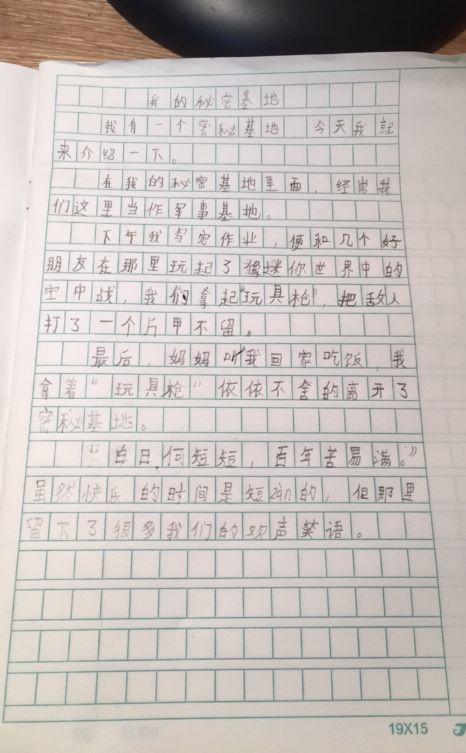 我的秘密基地
我有一个密秘基地，今天我就
来介绍一下。
在我的秘密基地里面，经常我
们这里当作军事基地。
下午我写完作业，便和几个好
朋友在那里玩起了迷你世界中的
空中战，我们拿起"玩具枪"，把敌人
打了一个片甲不留。
最后，妈妈叫我回家吃饭，我
拿着"玩具枪"依依不舍的离开了
密秘基地。
白日何短短，百年苦易满。"
虽然快乐的时间是短zàn的，但那里
留下了很多我们的欢声笑语。
19X15